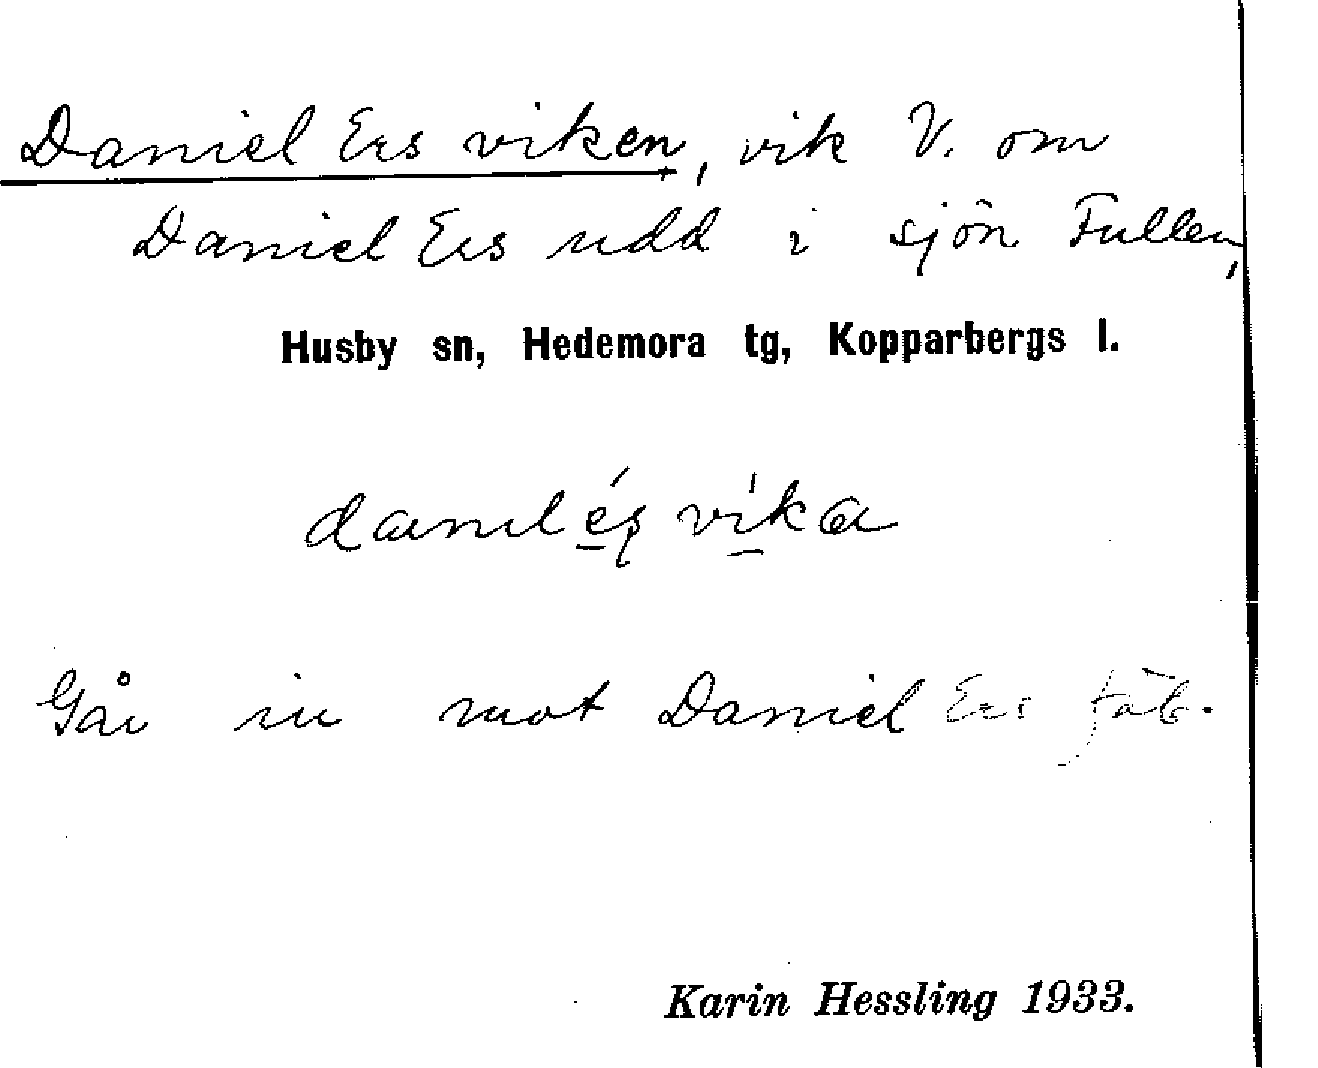 Daniel Ers viken, vik V. om
Daniel Ers udd i sjön Fullen,
Husby sn, Hedemora tg, Kopparbergs l.
vika
Går in mot Daniel Ers fäb.
Karin Hessling 1933.